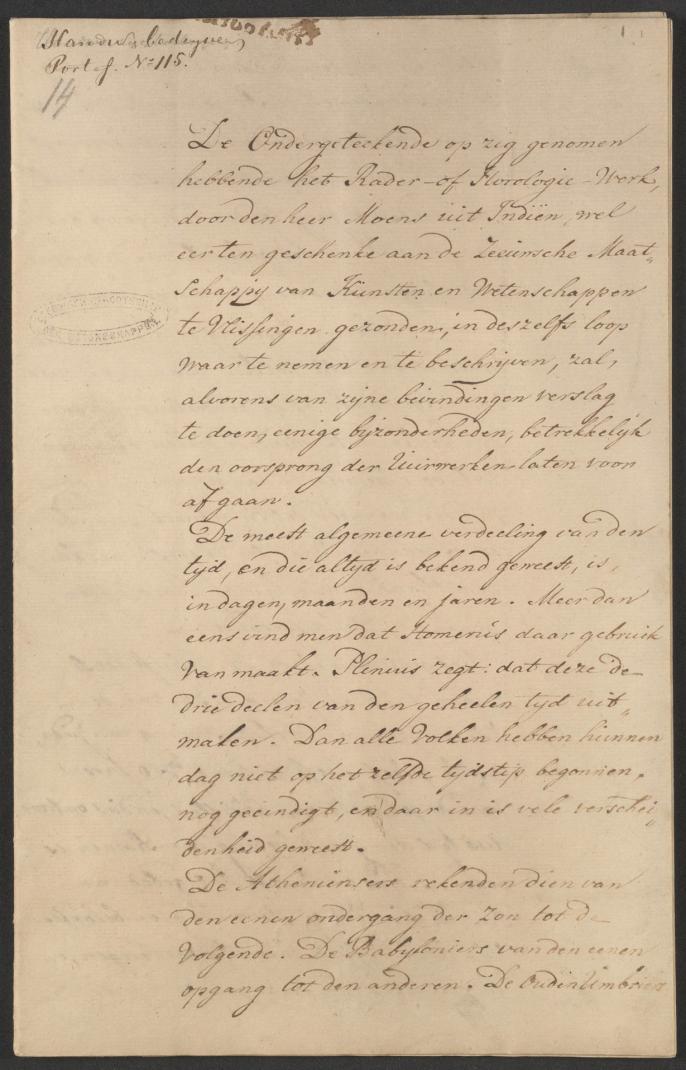 Portef. N.º 115.
14
De Ondergeteekende op zig genomen
hebbende het Rader-of Horologie-Werk,
door den heer Moens uit Indiën, wel
eer ten geschenke aan de Zeeuwsche Maat„
Schappij van Kunsten en Wetenschappen
te Vlissingen gezonden, in deszelfs loop
waarte nemen en te beschrijven, zal,
alvorens van zijne bevindingen verslag
te doen, eenige bijzonderheden, betrekkelijk
den oorsprong der Uurwerken laten voor
af gaan.
De meest algemeene verdeeling van den
tijd, en die altyd is bekend geweest, is,
in dagen, maanden en jaren. Meer dan
eens vind men dat Homerús daar gebruik
van maakt. Plinius zegt: dat deze de
drie deelen van den geheelen tyd uit„
maken. Dan alle Volken hebben húnnen
dag niet op het zelfde tydstip begonnen,
nog geeindigt, en daar in is vele verschei„
denheid geweest.
De Atheniënsers rekenden dien van
den eenen ondergang der Zon tot de
Volgende. De Babyloniers van den eenen
opgang tot den anderen. De Oude Umbriërs